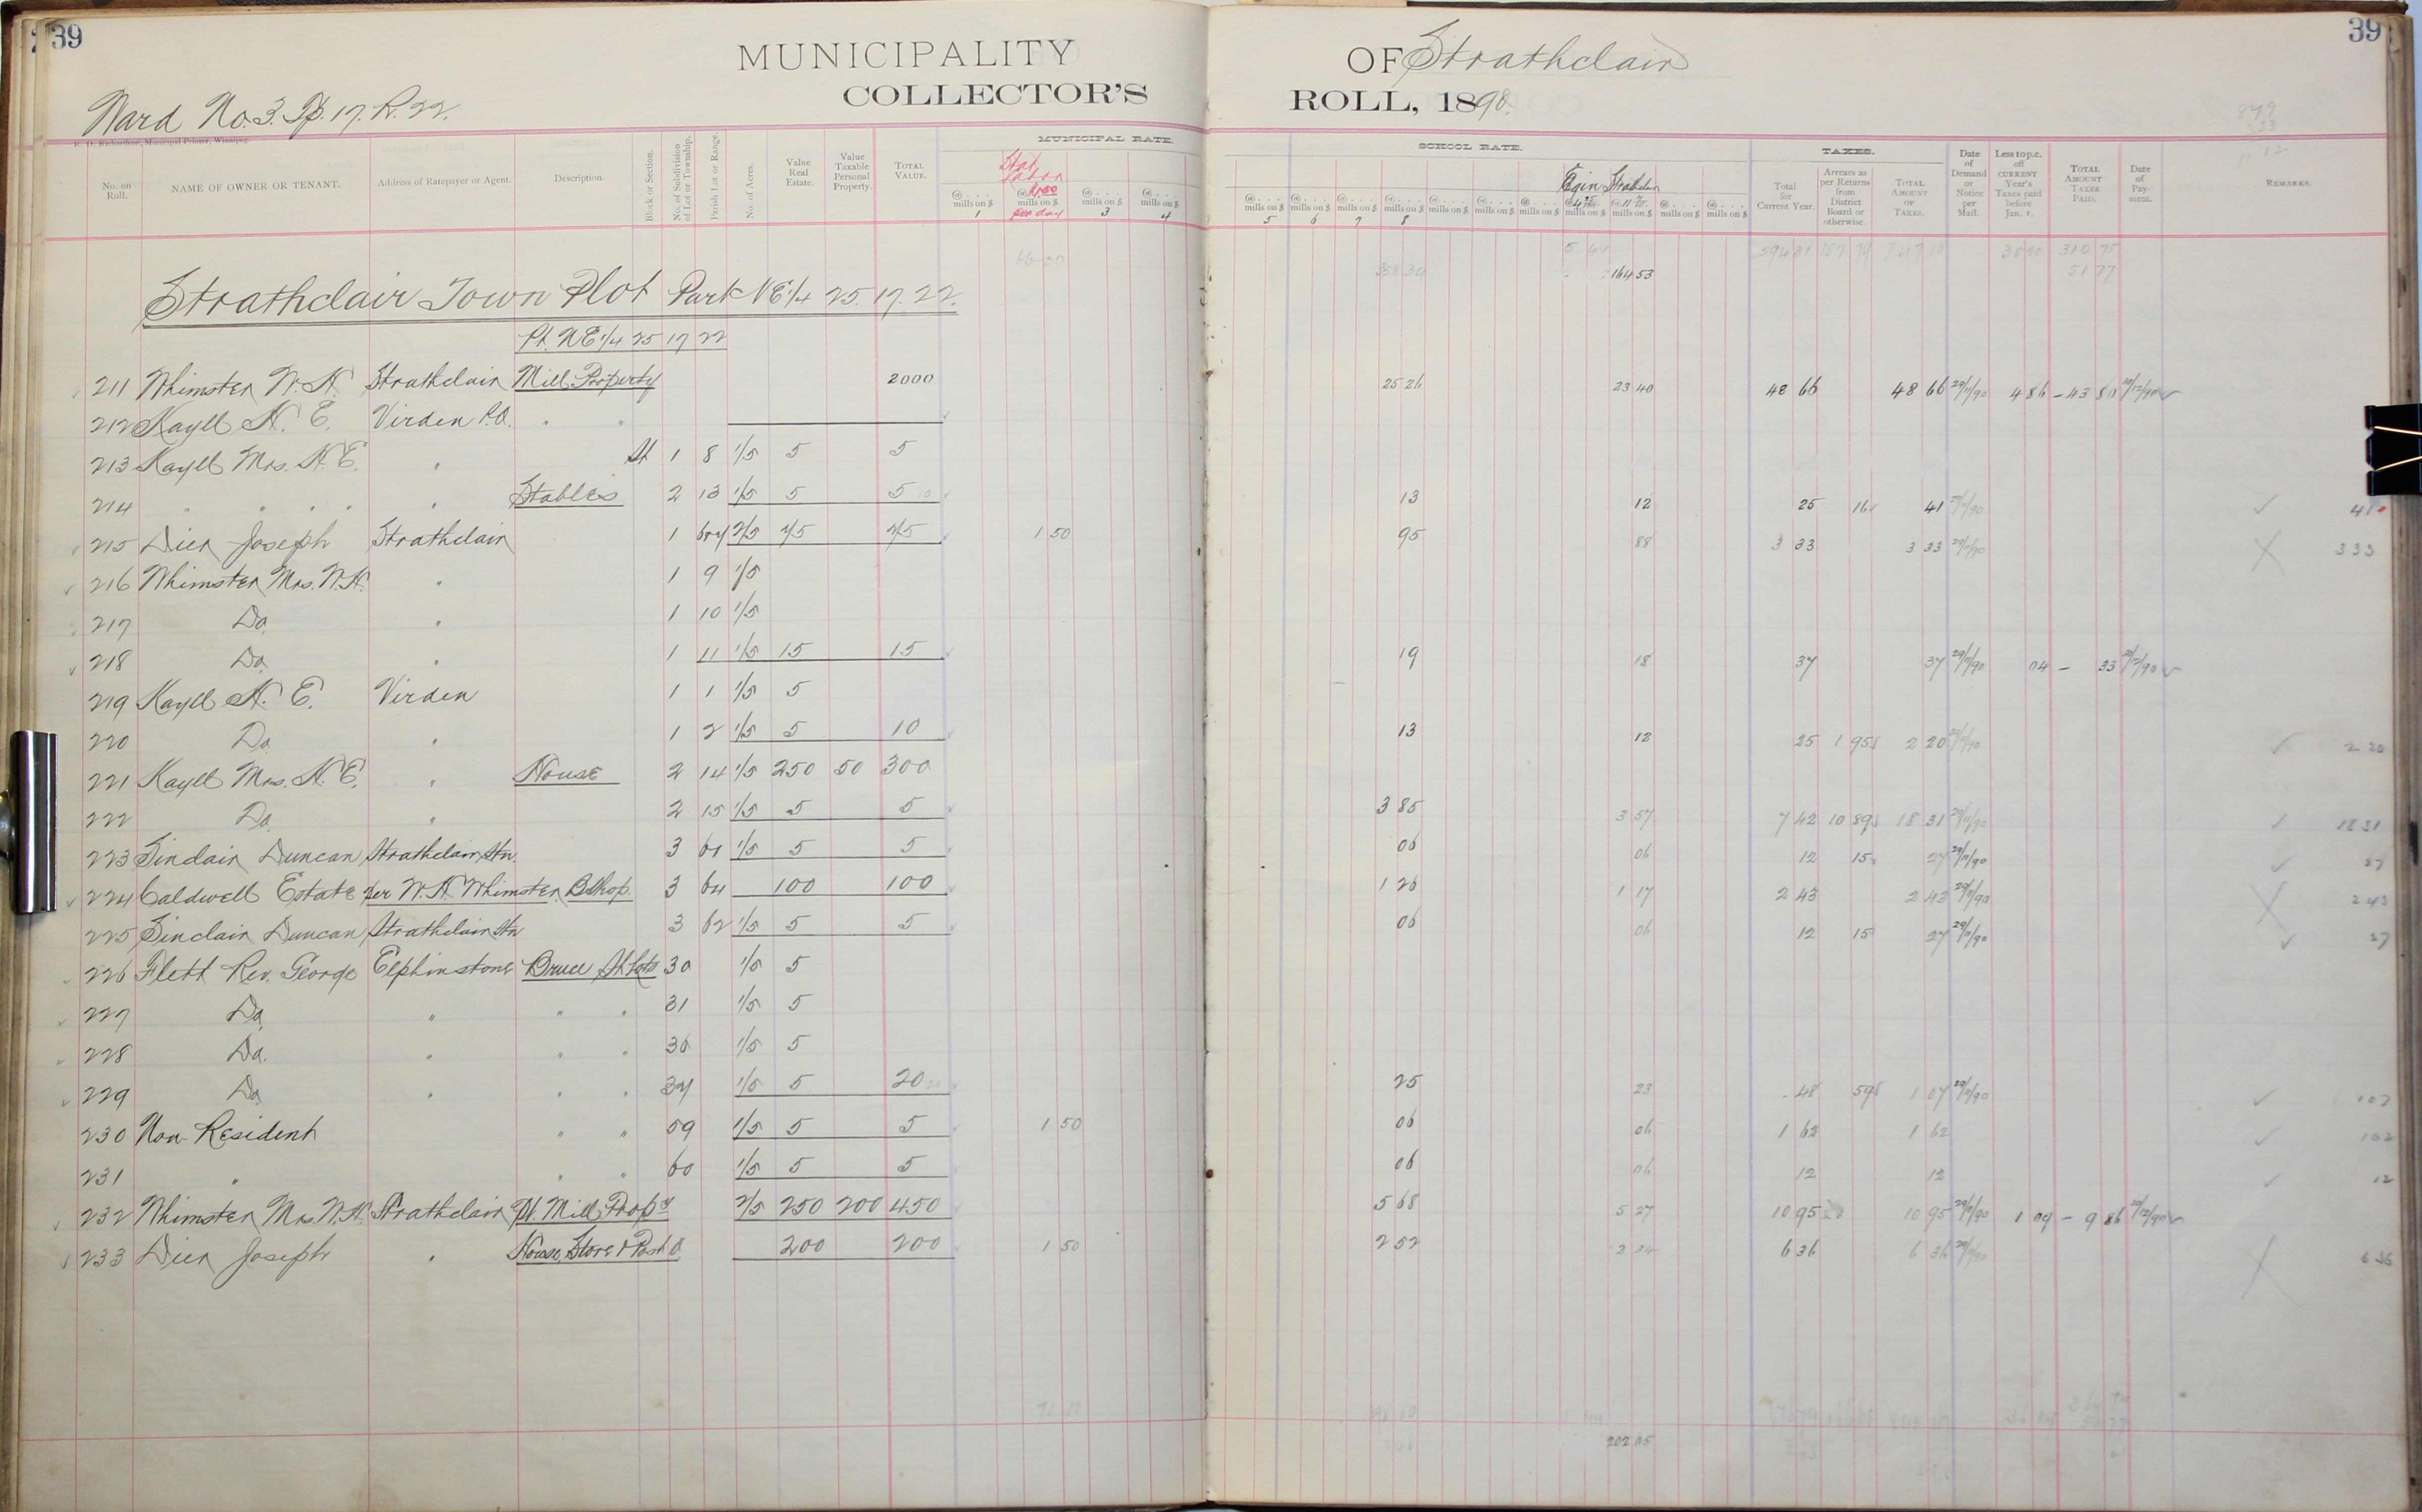 39 39
MUNICIPALITY OF Strathclair
COLLECTOR'S ROLL, 1890.
Ward No. 3. Tp. 17. R. 22.
R. D. Richardson, Municipal Printer, Winnipeg.
MUNICIPAL RATE. SCHOOL RATE. TAXES.
No. on Roll. NAME OF OWNER OR TENANT. Address of Ratepayer or Agent. Description. Block or Section. No. of Subdivision of Lot or Township. Parish Lot or Range. No. of Acres. Value Real Estate. Value Taxable Personal Property. TOTAL VALUE. Total for Current Year. Arrears as per Returns from District Board or otherwise. TOTAL AMOUNT OF TAXES. Date of Demand or Notice per Mail. Less 10 p.c. off CURRENT Year's Taxes paid before Jan. 1. TOTAL AMOUNT TAXES PAID. Date of Payment. REMARKS.
Stat Labor per day
@ mills on $ 1 @ mills on $ @ mills on $ 3 @ mills on $ 4 @ mills on $ 5 @ mills on $ 6 @ mills on $ 7 @ mills on $ 8
66 00 5 44 594 31 310 75
164 53 51 77
Strathclair Town Plot Part NE 1/4 25. 17. 22.
Pt. NE 1/4 25 17 22
211 Whimster W. H. Strathclair Mill Property 2000 25 26 23 40 48 66 48 66 29/11/90 4 86 – 43 80
212 Kayll H. E. Virden P.O. " "
213 Kayll Mrs. H. E. " 1 8 1/5 5 5
214 " " " " " Stables 2 13 1/5 5 5 10 13 12 25 16 41 41
215 Dier Joseph Strathclair 1 2/5 75 75 1 50 95 88 3 33 3 33 3 33
216 Whimster Mrs. W. H. " 1 9 1/5
217 Do. " 1 10 1/5
218 Do. " 1 11 1/5 15 15 19 18 37 37 29/11/90 04 – 33
219 Kayll H. E. Virden 1 1 1/5 5
220 Do. " 1 2 1/5 5 10 13 12 25 1 95 2 20 2 20
221 Kayll Mrs. H. E. " House 2 14 1/5 250 50 300
222 Do. " 2 15 1/5 5 5 3 85 3 57 7 42 10 89 18 31 29/11/90 18 31
223 Sinclair Duncan Strathclair Stn. 3 61 1/5 5 5 06 06 12 15 27 29/11/90 27
224 Caldwell Estate per W. H. Whimster B Shop. 3 64 100 100 1 26 1 17 2 43 2 43 29/11/90 2 43
225 Sinclair Duncan Strathclair Stn 3 62 1/5 5 5 06 06 12 15 27 29/11/90 27
226 Flett Rev. George Elphinstone Bruce St Lots 30 1/5 5
227 Do. " " " 31 1/5 5
228 Do. " " " 36 1/5 5
229 Do. " " " 37 1/5 5 20 25 23 48 59 1 07 29/11/90 1 07
230 Non Resident " " 59 1/5 5 5 1 50 06 06 1 62 1 62 1 62
231 " " " 60 1/5 5 5 06 06 12 12 12
232 Whimster Mrs. W. H. Strathclair Pt. Mill Propy 2/5 250 200 450 5 68 5 27 10 95 10 95 29/11/90 1 09 – 9 86
233 Dier Joseph " House, Store & Post O. 200 200 1 50 2 52 2 34 6 36 6 36 6 36
202 05